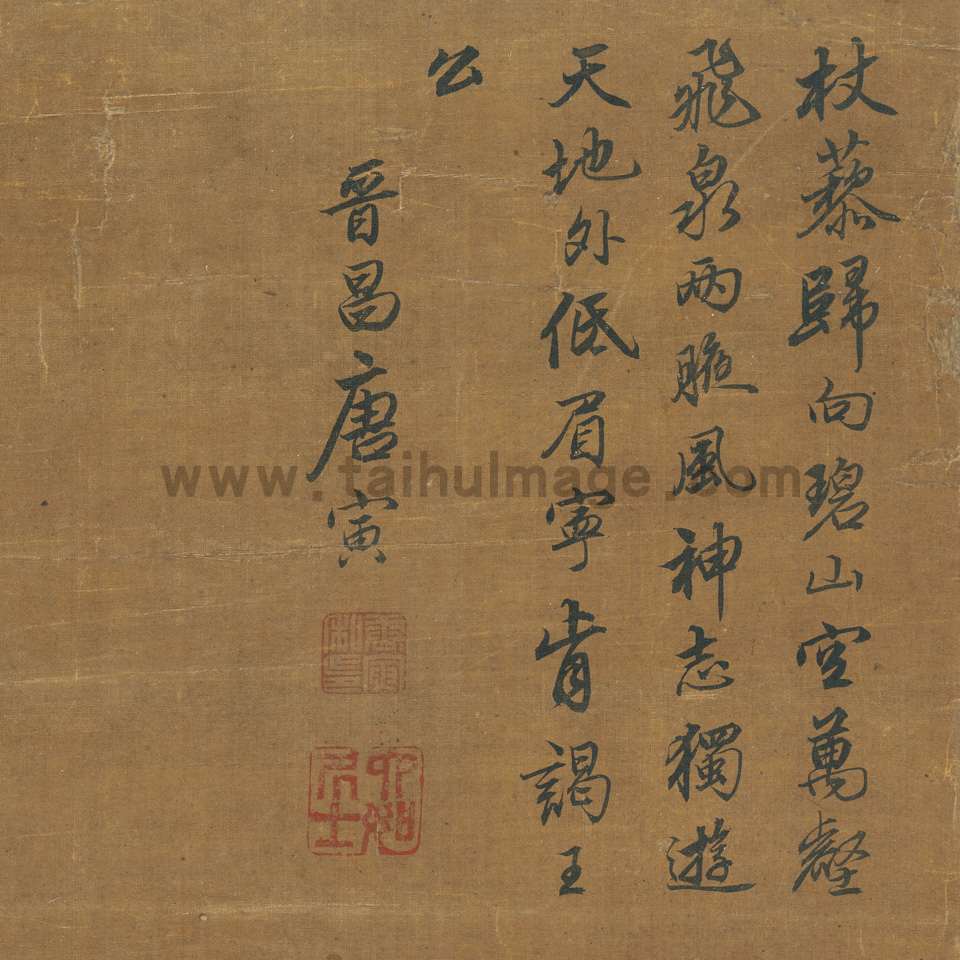 杖藜歸向碧山空萬壑
飛泉兩腋風神志獨遊
天地外低眉寧肯謁王
公
晉昌唐寅
唐寅私印
六如居士
www.taihuImage.com